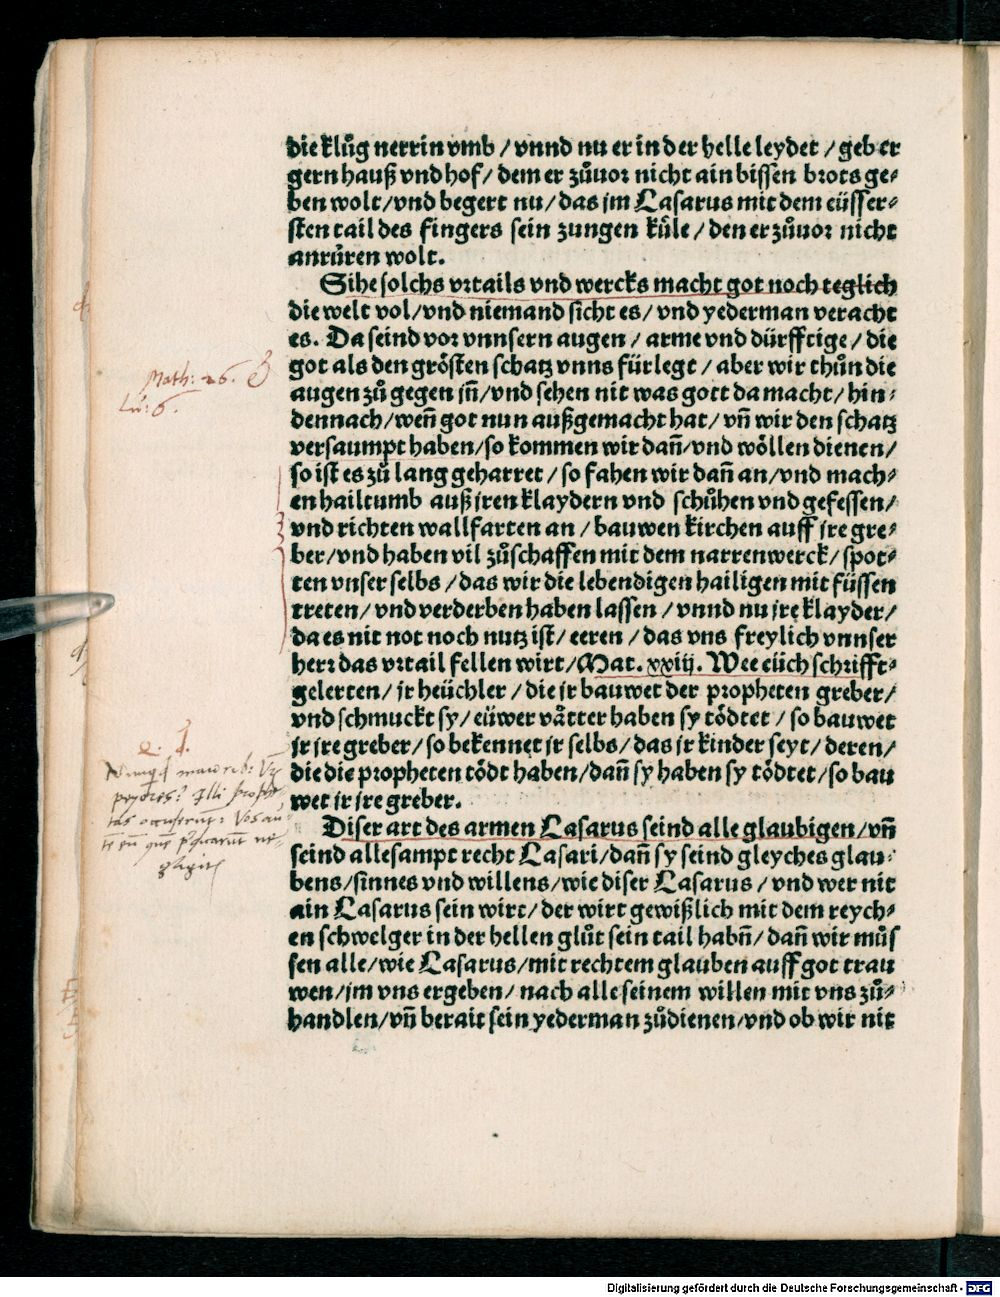 die klůg nerrin vmb / vnnd nu er in der helle leydet / geb er
gern hauß vnd hof / dem er zůuor nicht ain bissen brots ge-
ben wolt / vnd begert nu / das jm Lasarus mit dem eüsser-
sten tail des fingers sein zungen kůle / den er zůuor nicht
anrůren wolt.
Sihe solchs vrtails vnd wercks macht got noch teglich
die welt vol / vnd niemand sicht es / vnd yederman veracht
es. Da seind vor vnnsern augen / arme vnd dürfftige / die
got als den grösten schatz vnns fürlegt / aber wir thůn die
augen zů gegen jn̄ / vnd sehen nit was gott da macht / hin-
dennach / wen̄ got nun außgemacht hat / vn̄ wir den schatz
versaumpt haben / so kommen wir dan̄ / vnd wöllen dienen /
so ist es zů lang geharret / so fahen wir dan̄ an / vnd mach-
en hailtumb auß jren klaydern vnd schůhen vnd gefessen /
vnd richten wallfarten an / bauwen kirchen auff jre gre-
ber / vnd haben vil zůschaffen mit dem narrenwerck / spot-
ten vnser selbs / das wir die lebendigen hailigen mit füssen
treten / vnd verderben haben lassen / vnnd nu jre klayder /
da es nit not noch nutz ist / eeren / das vns freylich vnnser
herr das vrtail fellen wirt / Mat. xxiij. Wee eüch schrifft-
gelerten / jr heüchler / die jr bauwet der propheten greber /
vnd schmuckt sy / eüwer våtter haben sy tödtet / so bauwet
jr jre greber / so bekennet jr selbs / das jr kinder seyt / deren /
die die propheten tödt haben / dan̄ sy haben sy tödtet / so bau
wet jr jre greber.
Diser art des armen Lasarus seind alle glaubigen / vn̄
seind allesampt recht Lasari / dan̄ sy seind gleyches glau-
bens / sinnes vnd willens / wie diser Lasarus / vnd wer nit
ain Lasarus sein wirt / der wirt gewißlich mit dem reych-
en schwelger in der hellen glůt sein tail habn̄ / dan̄ wir můs
sen alle / wie Lasarus / mit rechtem glauben auff got trau
wen / jm vns ergeben / nach alle seinem willen mit vns zů-
handlen / vn̄ berait sein yederman zůdienen / vnd ob wir nit
Math: 26.
Lu: 6.
Digitalisierung gefördert durch die Deutsche Forschungsgemeinschaft - DFG